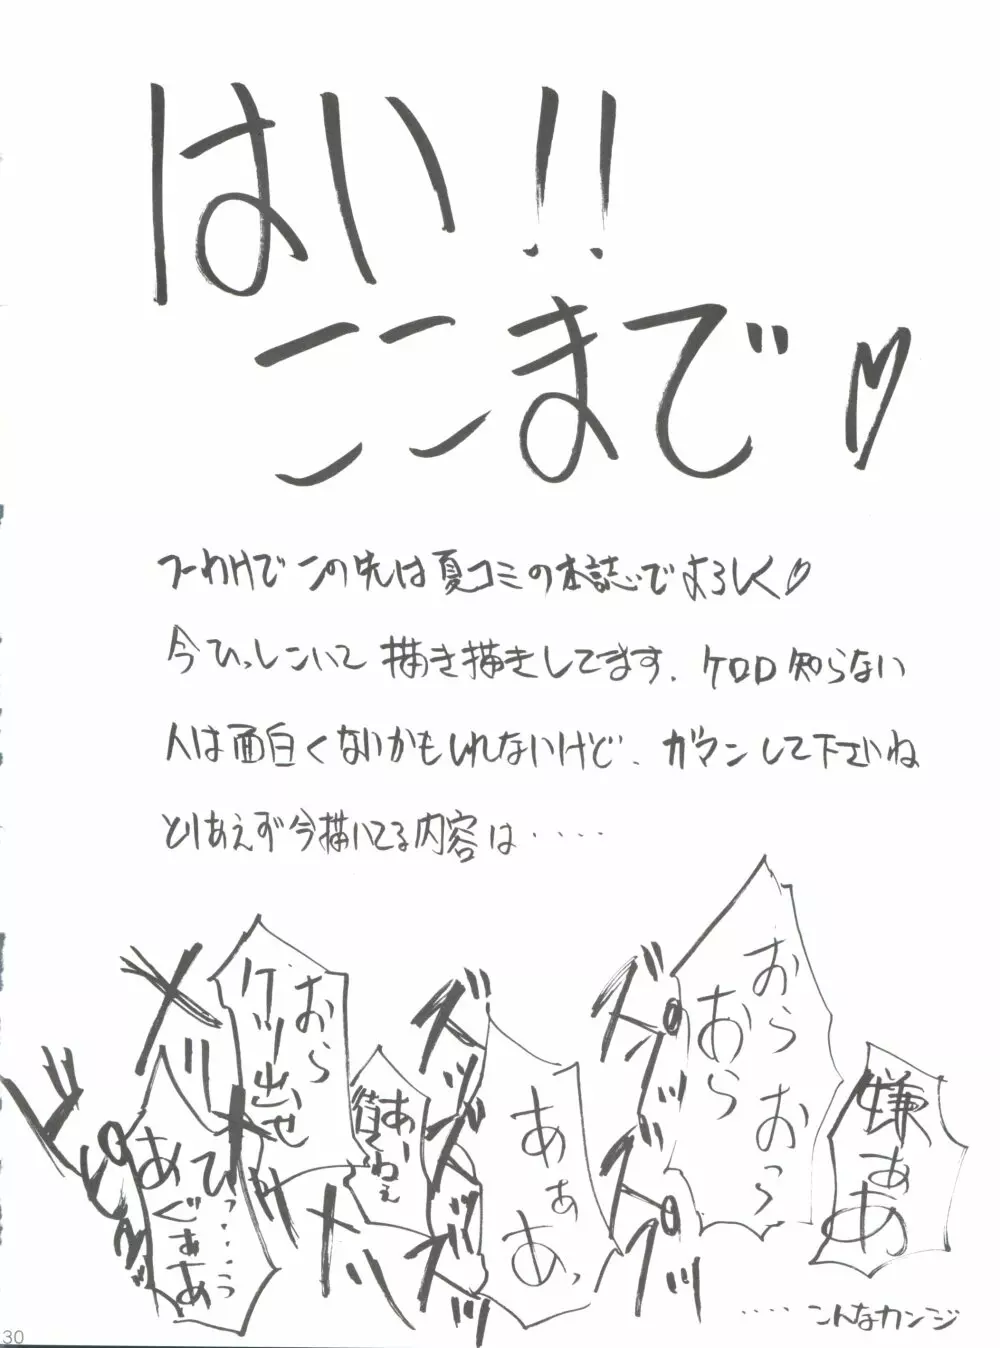 はい!!
ここまで♡
つーわけでこの先は夏コミの本誌でよろしく♡
今ひっしこいて描き描きしてます．ケロロ知らない
人は面白くないかもしれないけど．ガマンして下さいね
とりあえず今描いてる内容は・・・・・
嫌ぁあ
おら
おら
おっ
ズプッ
あぁあっ
あー
おら
ケツ出せ
ひっ・・・・っ
あぐぁあ
・・・・こんなカンジ
30